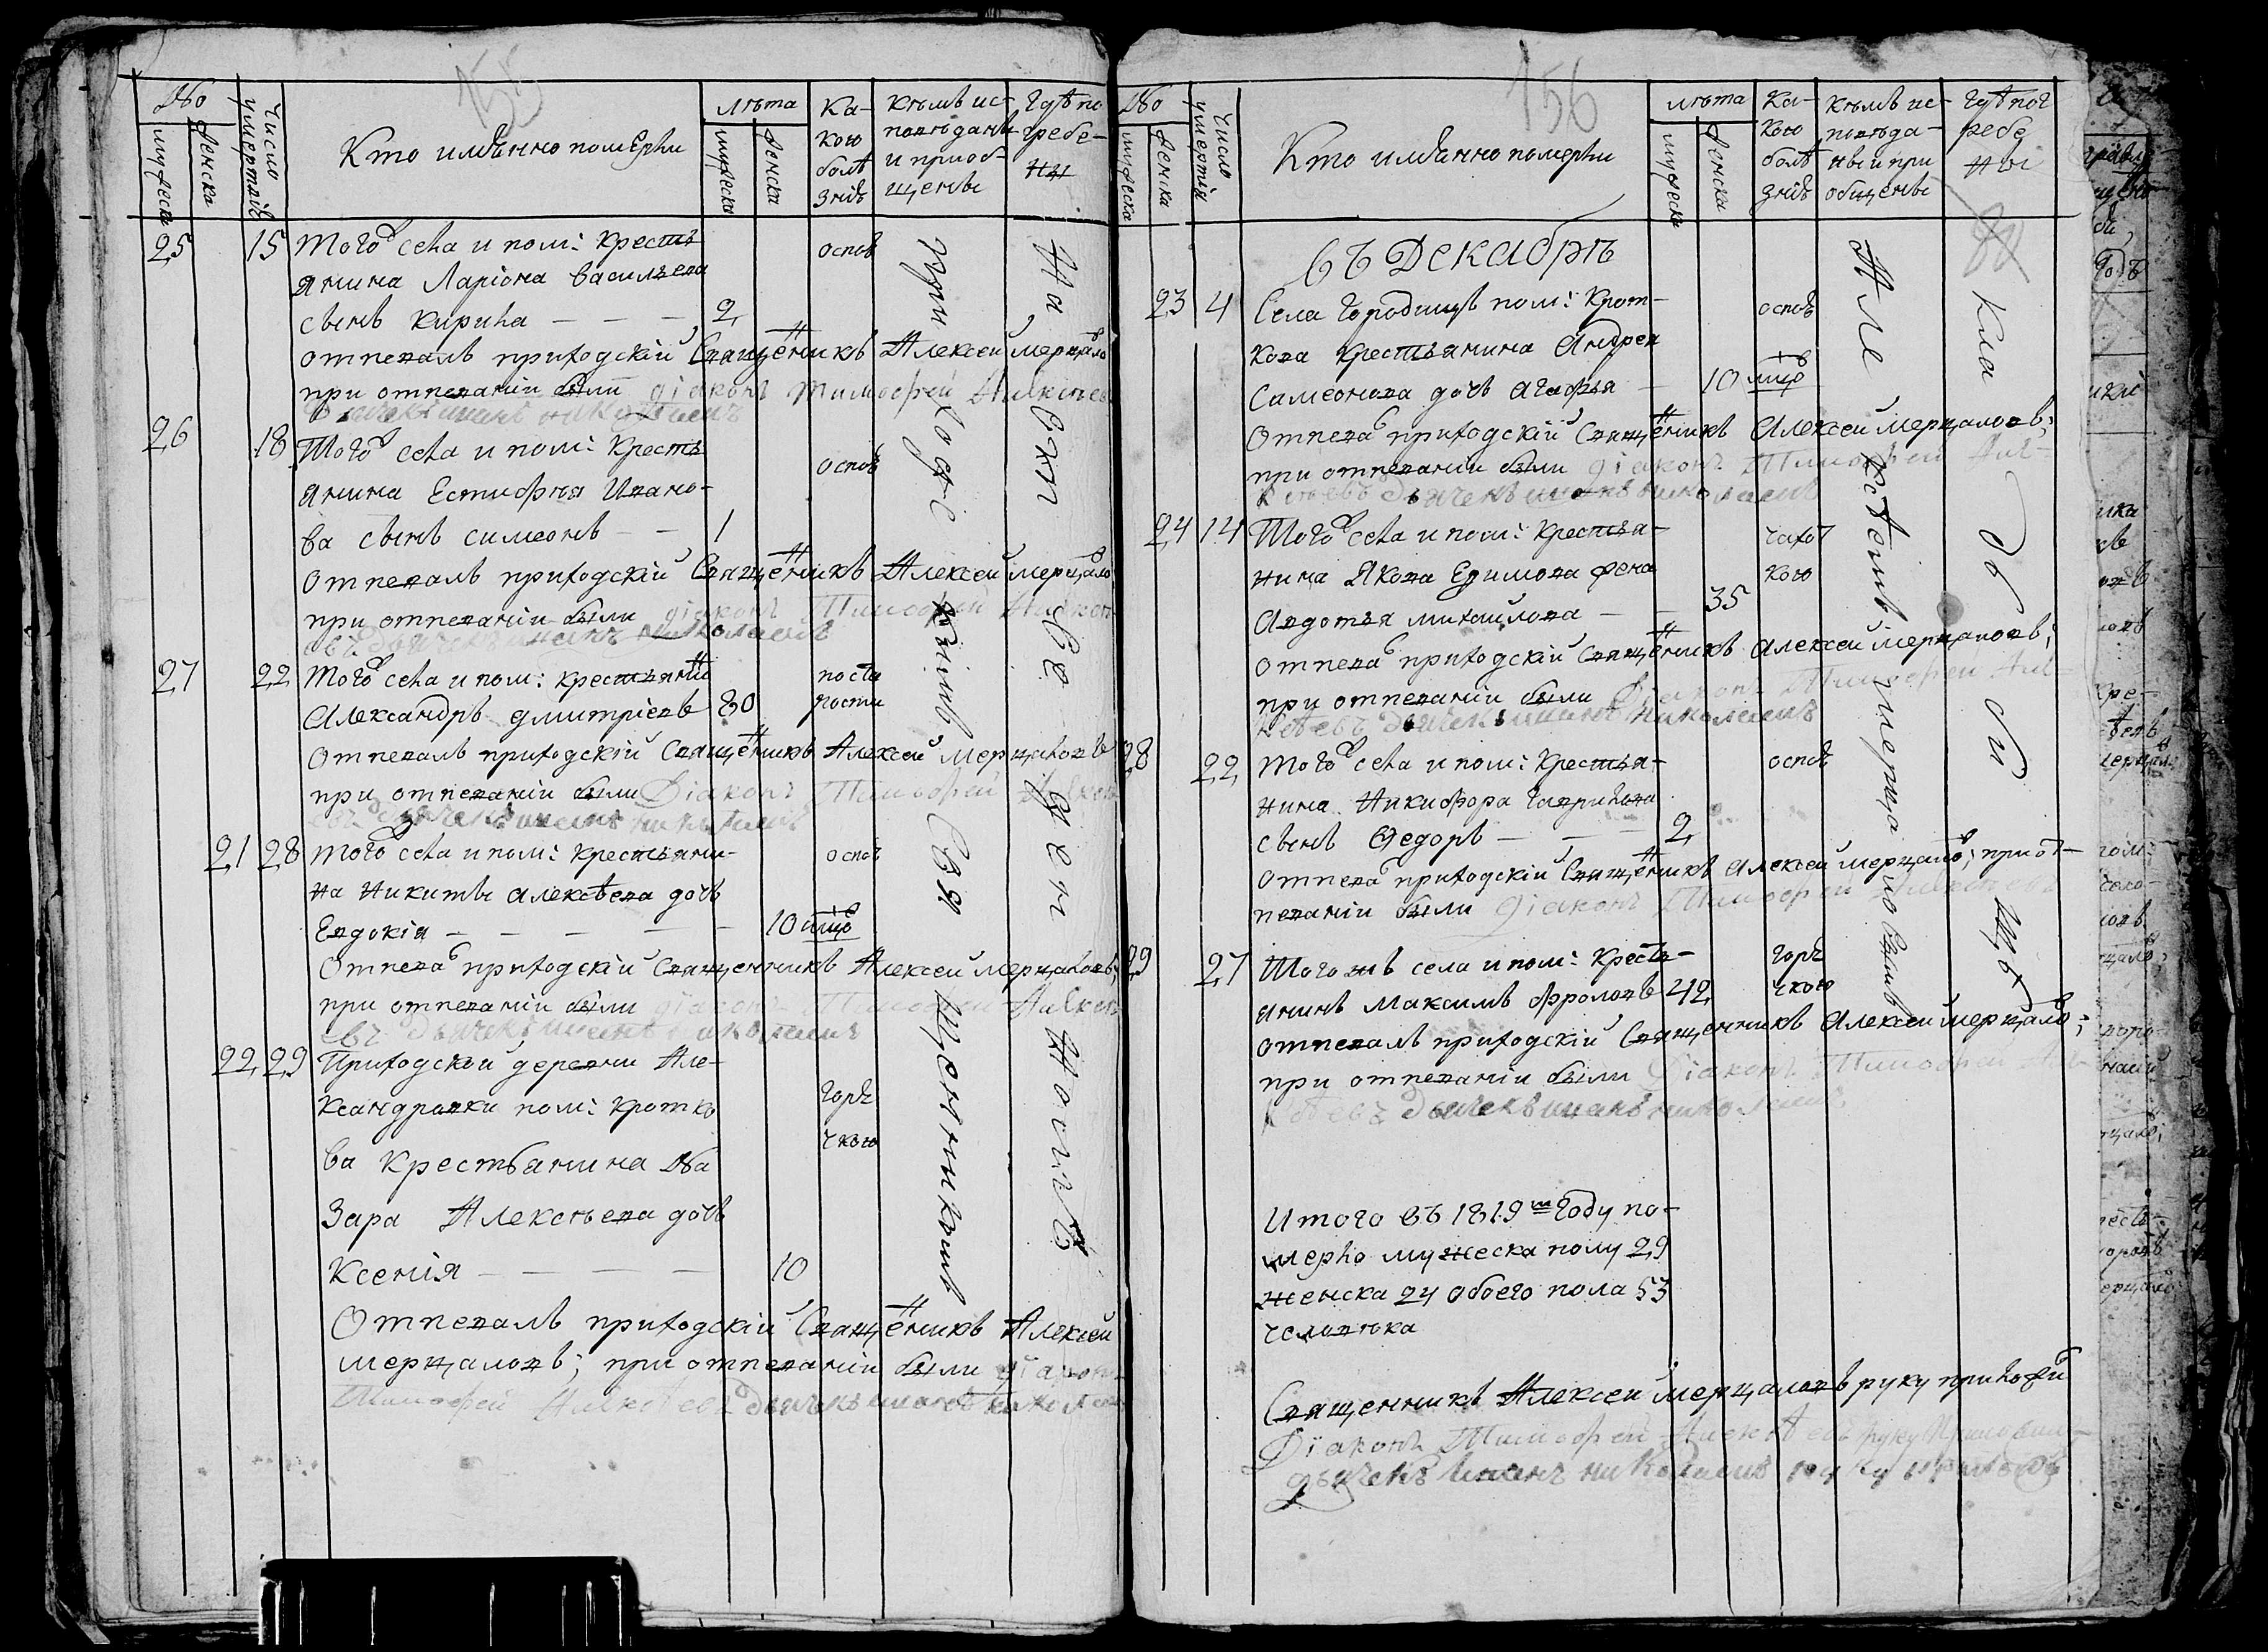 155
№
мужеска
женска
Число умертвій
Кто имянно померли
лѣта
мужеска
женска
Ка-
кою
болѣ
знію
кѣмъ ис-
повѣданы
и приоб-
щены
гдѣ по
гребе-
ны
25 15 Того села и пом: кресть
оспою
янина Ларіона Васильева
сынъ Кирила — — — 2
отпевалъ приходскій Священникъ Алексей Мерцало
при отпеваніи были діаконъ Тимофей Алексеев
дьячекъ иванъ николаевъ
26 18 Того села и пом: Кресть
оспою
янина Естифѣя Ивано-
ва сынъ симеонъ — — 1
отпевалъ приходскій Священникъ Алексей мерцало
при отпеваніи были діаконъ Тимофей Алексе
евъ дьячекъ иванъ николаевъ
27 22 Того села и пом: крестьянинъ
по ста
Александръ дмитріевъ 80
рости
Отпевалъ приходскій Священникъ Алексей Мерцаловъ
при отпеваніи были Діаконъ Тимофей Алексе
евъ дьячекъ иванъ николаевъ
21 28 того села и пом: крестьяни-
оспою
на Никиты алексѣева дочь
Евдокія — — — — — 10 мцо
Отпева приходскій Священникъ Алексей мерцаловъ;
при отпеваніи были діаконъ Тимофей Алексе
евъ дьячекъ иванъ николаевъ
22 29 Приходской деревни Але-
ксандровки пом: Кротко
горя
ва Крестьянина Ла
чкою
зара Алексѣева дочь
Ксенія — — — — 10
Отпевалъ приходскій Священникъ Алексей
мерцаловъ; при отпеваніи были діаконъ
Тимофей Алексѣевъ дьячекъ иванъ николаевъ
приходскимъ Священникомъ
На отве денномъ
156
№
мужеска
женска
Число умертвія
Кто имянно померли
лѣта
мужеска
женска
Ка-
кою
болѣ
знію
кѣмъ ис-
повѣда-
ны и при
общены
гдѣ пог
ребе
ны
въ Декабрѣ
23 4 Села Городищъ пом: Крот-
оспою
кова крестьянина Андрея
Симеонова дочь агафья — 10 мцо
Отпева приходскій Священникъ Алексей мерцаловъ;
при отпеваніи были діаконъ Тимофей Але-
ксѣевъ дьячекъ иванъ николаевъ
24 14 Того села и пом: Крестья-
чахот
нина Якова Ефимова жена
кою
Авдотья михайлова — — 35
отпева приходскій священникъ алексей мерцаловъ;
при отпеваніи были Діаконъ Тимофей Але-
ксѣевъ дьячекъ иванъ николаевъ
28 22 Того села и пом: Крестья-
оспою
нина Никифора Гаврилова
сынъ Федоръ — — — 2
Отпева приходскій Священникъ Алексей мерцало; при от-
певаніи были діаконъ Тимофей Алексѣевъ
29 27 Того жъ села и пом: Кресть-
горя
янинъ Максимъ Фроловъ 42
чкою
отпевалъ приходскій Священникъ Алексей мерцало;
при отпеваніи были Діаконъ Тимофей Але-
ксѣевъ дьячекъ иванъ николаевъ
Алексѣемъ мерцаловымъ
кладбищѣ
Итого въ 1819м году по-
мерло мужеска полу 29
женска 24 обоего пола 53
человѣка
Священникъ Алексей мерцаловъ руку приложи
Діаконъ Тимофей Алексѣевъ руку приложил
дьячекъ Иванъ николаевъ руку приложилъ